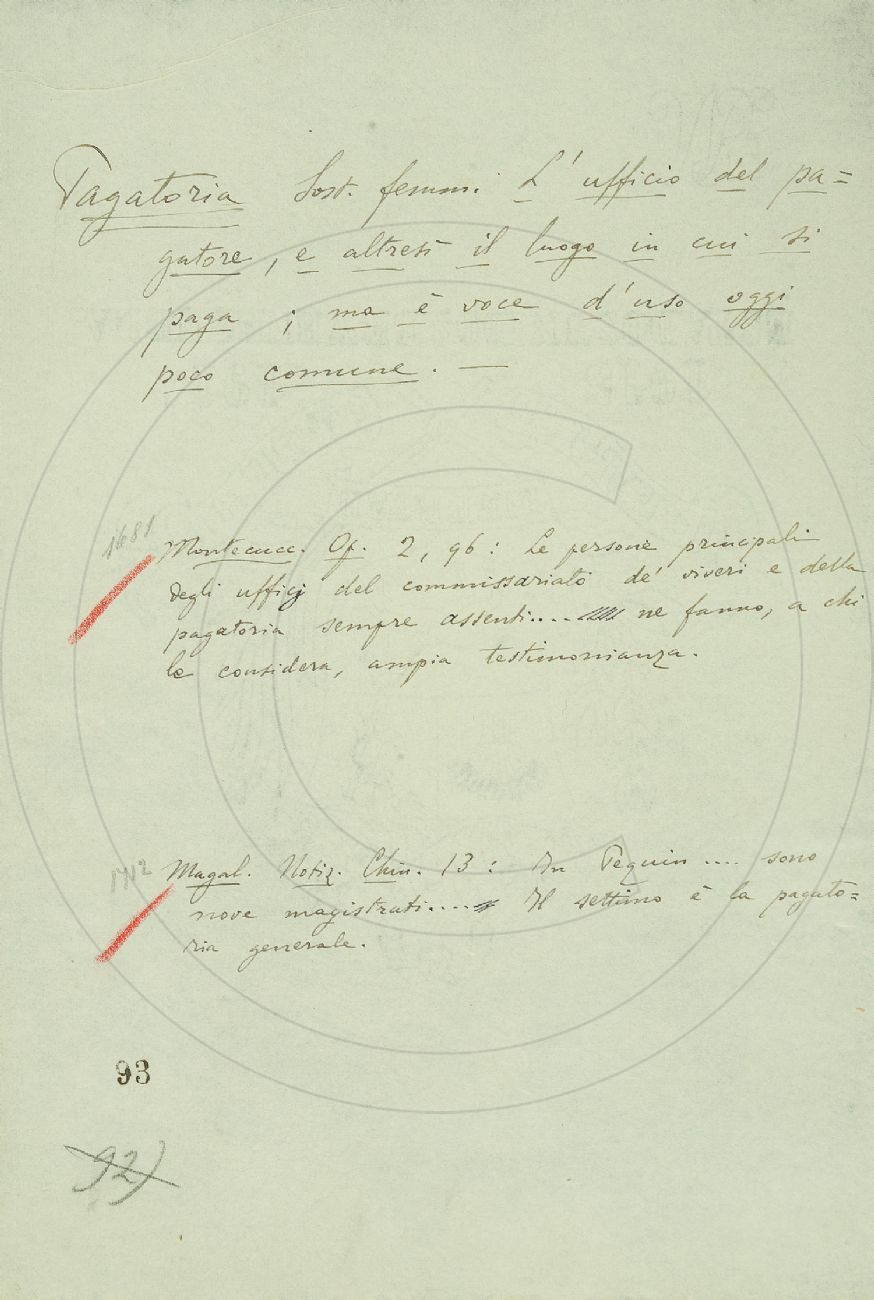 Pagatoria Sost. femm. L'ufficio del pa=
gatore, e altresì il luogo in cui si
paga; ma è voce d'uso oggi
poco comune. —
1681
Montecucc. Op. 2, 96: Le persone principali
degli ufficj del commissariato de' viveri e della
pagatoria sempre assenti.... ne fanno, a chi
le considera, ampia testimonianza.
1712
Magal. Notiz. Chin. 13: In Pequin .... sono
nove magistrati.... Il settimo è la pagato=
ria generale.
93
92)